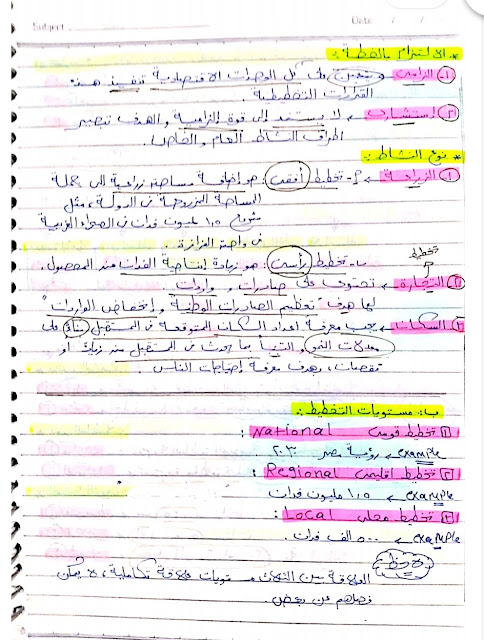 Subject
Date / /
* الالتزام بالخطة :
① إلزامى ← يتعين على كل الوحدات الاقتصادية تنفيذ هذه
القرارات التخطيطية.
② استشارى ← لا يستند إلى قوة إلزامية، والهدف تبصير
اطراف النشاط العام والخاص.
* نوع النشاط :
① الزراعة ← أ- تخطيط أفقى : هو إضافة مساحة زراعية الى جملة
المساحة المزروعة فى الدولة، مثل
مشروع ١,٥ مليون فدان فى الصحراء الغربية
فى واحة الفرافرة.
ب- تخطيط رأسى : هو زيادة إنتاجية الفدان من المحصول.
تخطيط
② التجارة ← تحتوى على صادرات و واردات.
لها هدف "تعظيم الصادرات الوطنية وإنخفاض الواردات"
③ السكان ← يجب معرفة أعداد السكان المتوقعة فى المستقبل بناءً على
معدلات النمو والتنبأ بما يحدث فى المستقبل من زيادة أو
نقصان، بهدف معرفة إحتياجات الناس.
ب: مستويات التخطيط :
① تخطيط قومى National :
example ← رؤية مصر ٢٠٣٠.
② تخطيط اقليمى Regional :
example ← ١,٥ مليون فدان
③ تخطيط محلى Local :
example ← ٥٠٠ الف فدان.
ملاحظة
العلاقة بين الثلاث مستويات علاقة تكاملية، لا يمكن
فصلهم عن بعض.